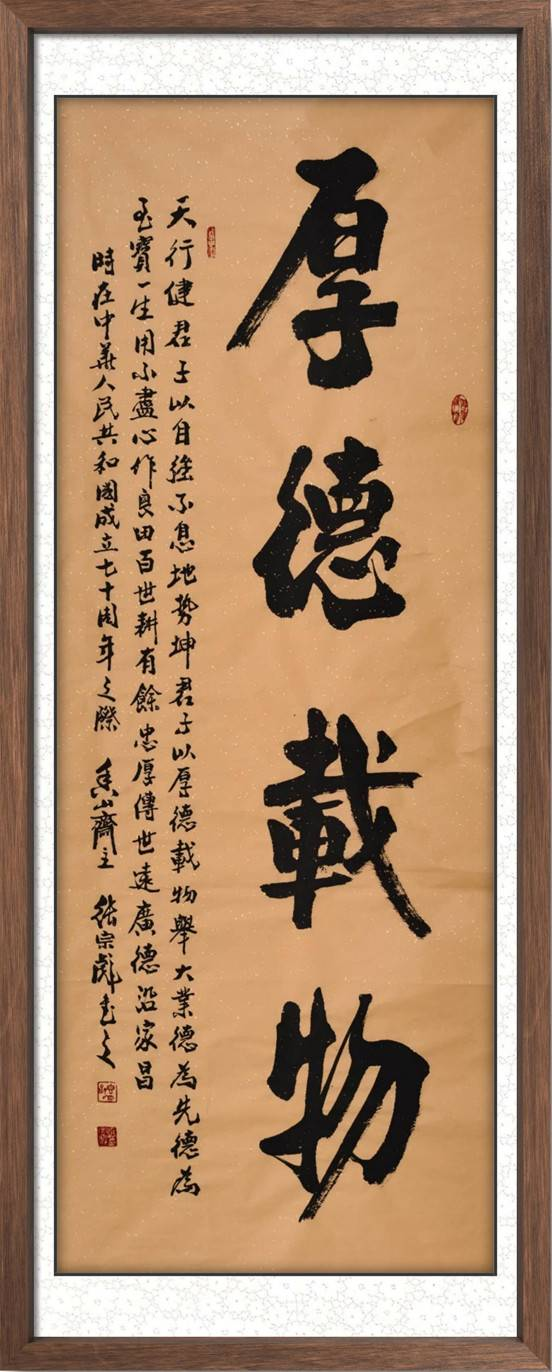 厚德載物
天行健君子以自强不息地势坤君子以厚德載物舉大業德為先德為
至寶一生用不盡心作良田百世耕有餘忠厚傳世遠廣德沿家昌
時在中華人民共和國成立七十周年之際 香山齋主 張宗彪書之